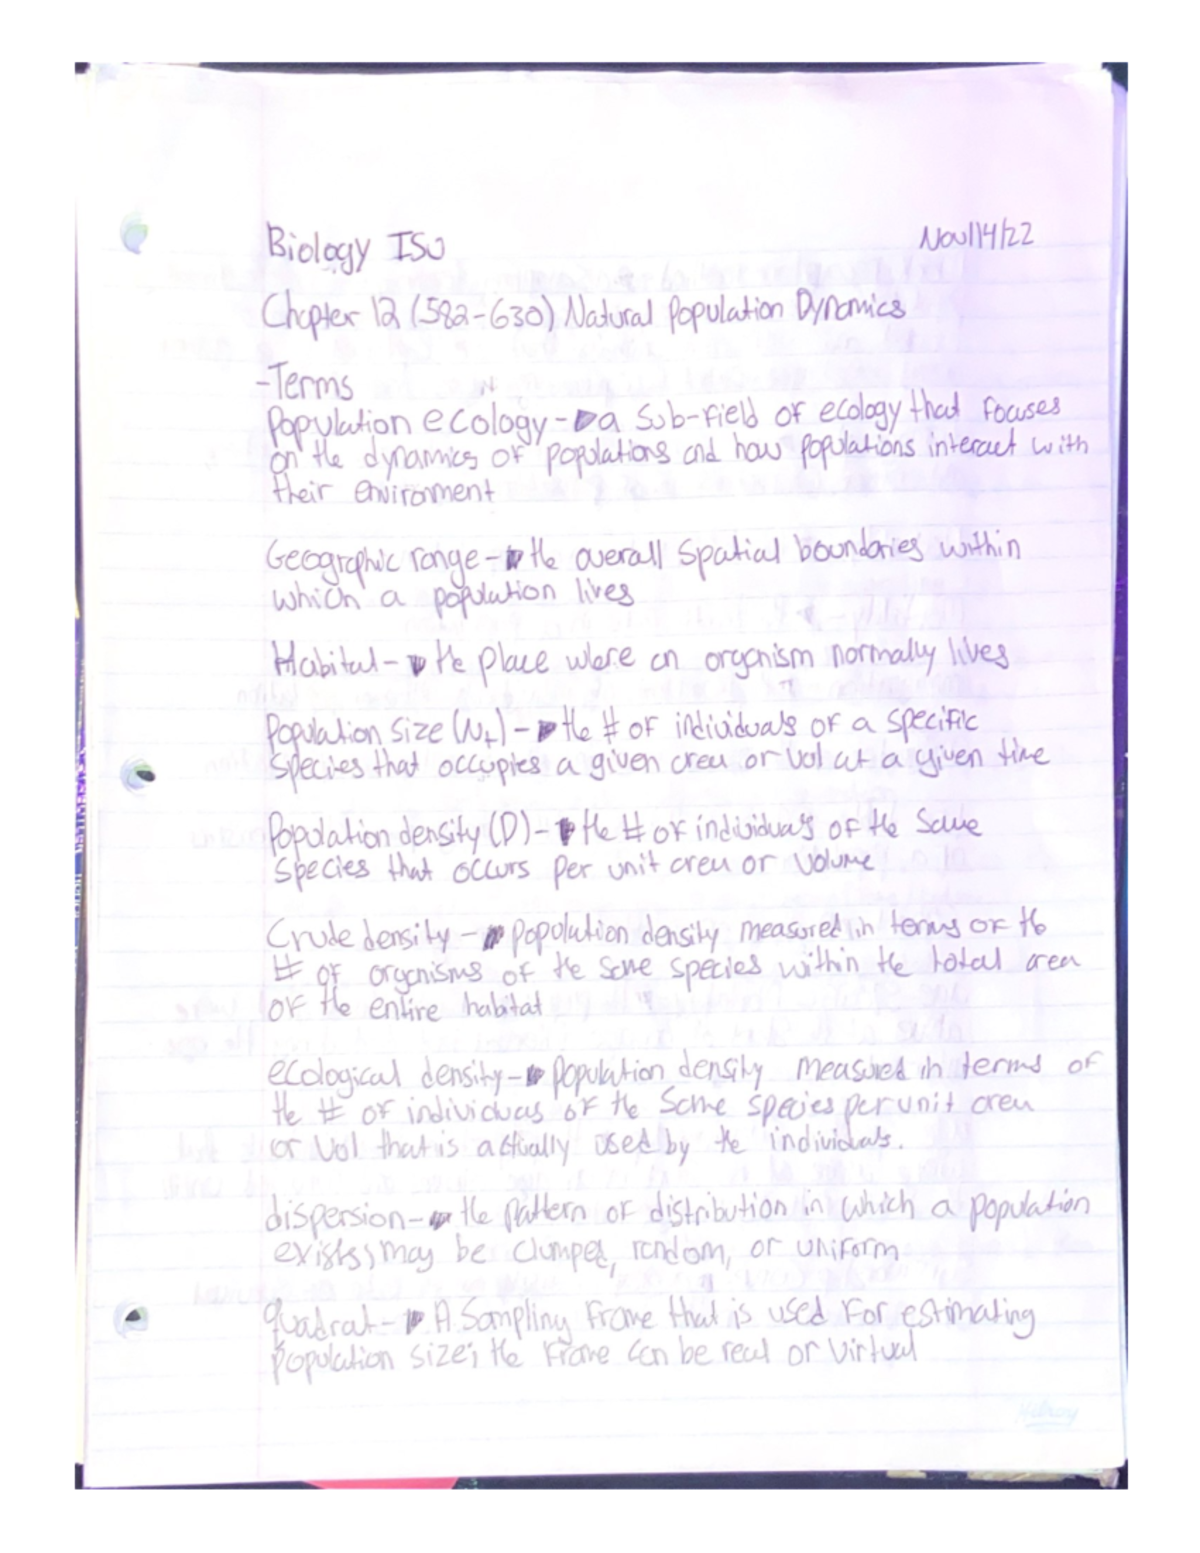 Biology ISU
Nov/14/22
Chapter 12 (582-630) Natural Population Dynamics
-Terms
Population ecology-→a sub-field of ecology that focuses
on the dynamics of populations and how populations interact with
their environment
Geographic range-→the overall spatial boundaries within
which a population lives
Habitat-→the place where an organism normally lives
Population size (Nt)-→the # of individuals of a specific
species that occupies a given area or vol at a given time
Population density (D)-→the # of individuals of the same
species that occurs per unit area or volume
Crude density-→population density measured in terms of the
# of organisms of the same species within the total area
of the entire habitat
ecological density-→population density measured in terms of
the # of individuas of the same species per unit area
or vol that is actually used by the individuals.
dispersion-→the pattern of distribution in which a population
exists; may be clumped, random, or uniform
quadrat-→A sampling frame that is used for estimating
population size; the frame can be real or virtual